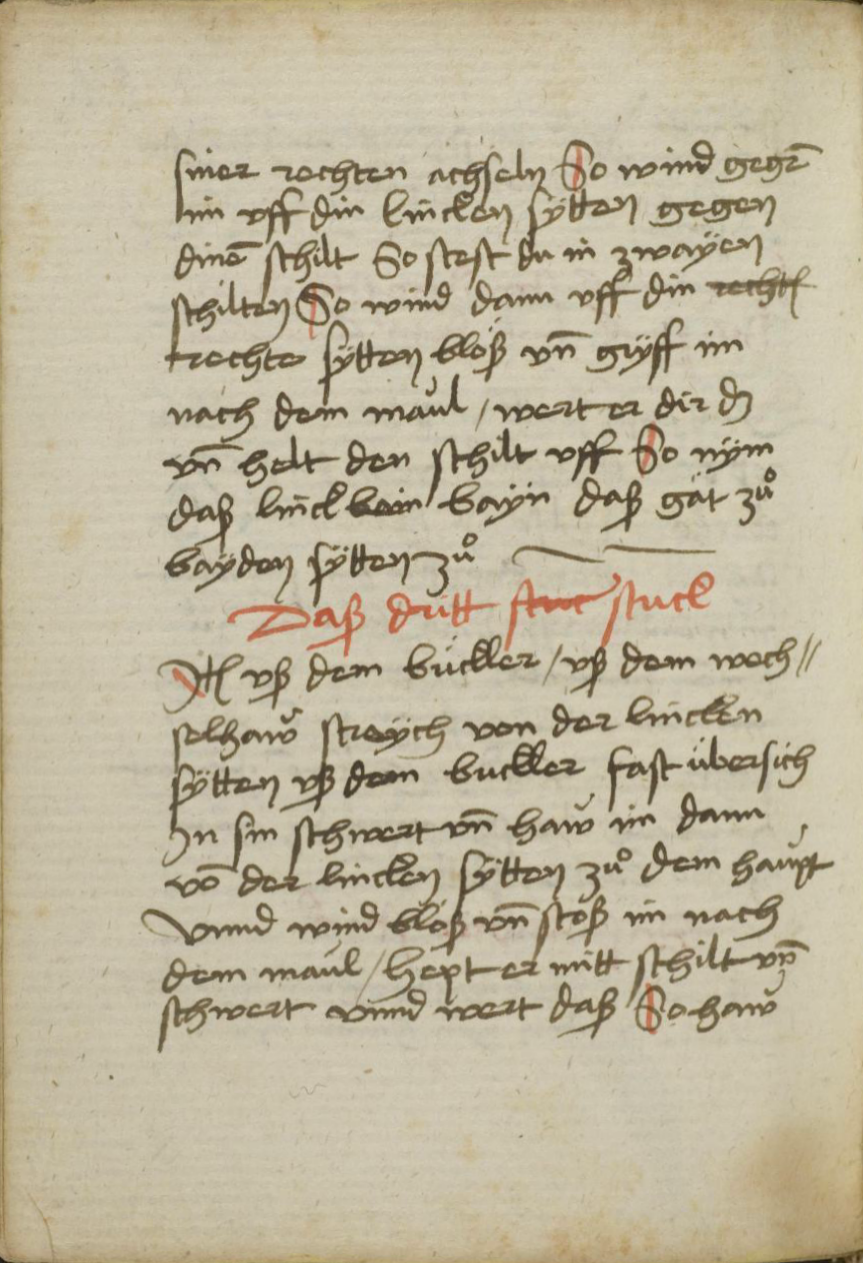 siner rechten achseln So wind gegē
im vff din lincken sÿtten gegen
dinē schilt So stest du in zwayen
schilten So wind dann vff din recht
rechte sÿtten bloß vn̄ gryff im
nach dem maul / wert er dir dz
vn̄ helt den schilt vff So nÿm
daß linck bain bayn daß gät zuͦ
bayden sÿtten zuͦ
Daß dritt stuc stuck
Itē vß dem buckler / vß dem wech//
selhaw streÿch von der lincken
sÿtten vß dem buckler fast übersich
In sin schwert vn̄ haw im dann
vō der lincken sÿtten zuͦ dem haupt
Vnnd wind bloß vn̄ stoß im nach
dem maul / hept er mitt schilt vn̄
schwert vnnd wert daß So haw